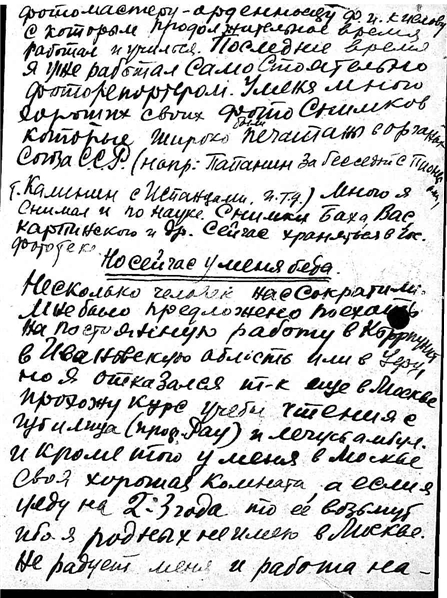 фотомастеру-орденносцу Ф. и.
с которым продолжительное время
работал и учился. Последнее время
я уже работал самостоятельно
фоторепортером. У меня много
хороших своих фотоснимков
которые широко были печатаны в
Союза ССР. (напр: Папанин за беседой с
т. Калинин с испанцами. и.т.д.) Много я
снимал и по науке. Снимки Баха, Вас.
Карпинского и др. Сейчас храняться в Гос.
фототеке
Но сейчас у меня беда.
Несколько человек нас сократили.
Мне было предложено поехать
на постоянную работу в
в Ивановскую область или в
но я отказался т-к еще в Москве
прохожу курс учебы чтения с
губ и лица (проф. Рау) и лечусь амбул.
и кроме того у меня в Москве
своя хорошая комната а если я
уеду на 2-3 года то её возьмут
ибо я родных не имею в Москве.
Не радует меня и работа на-